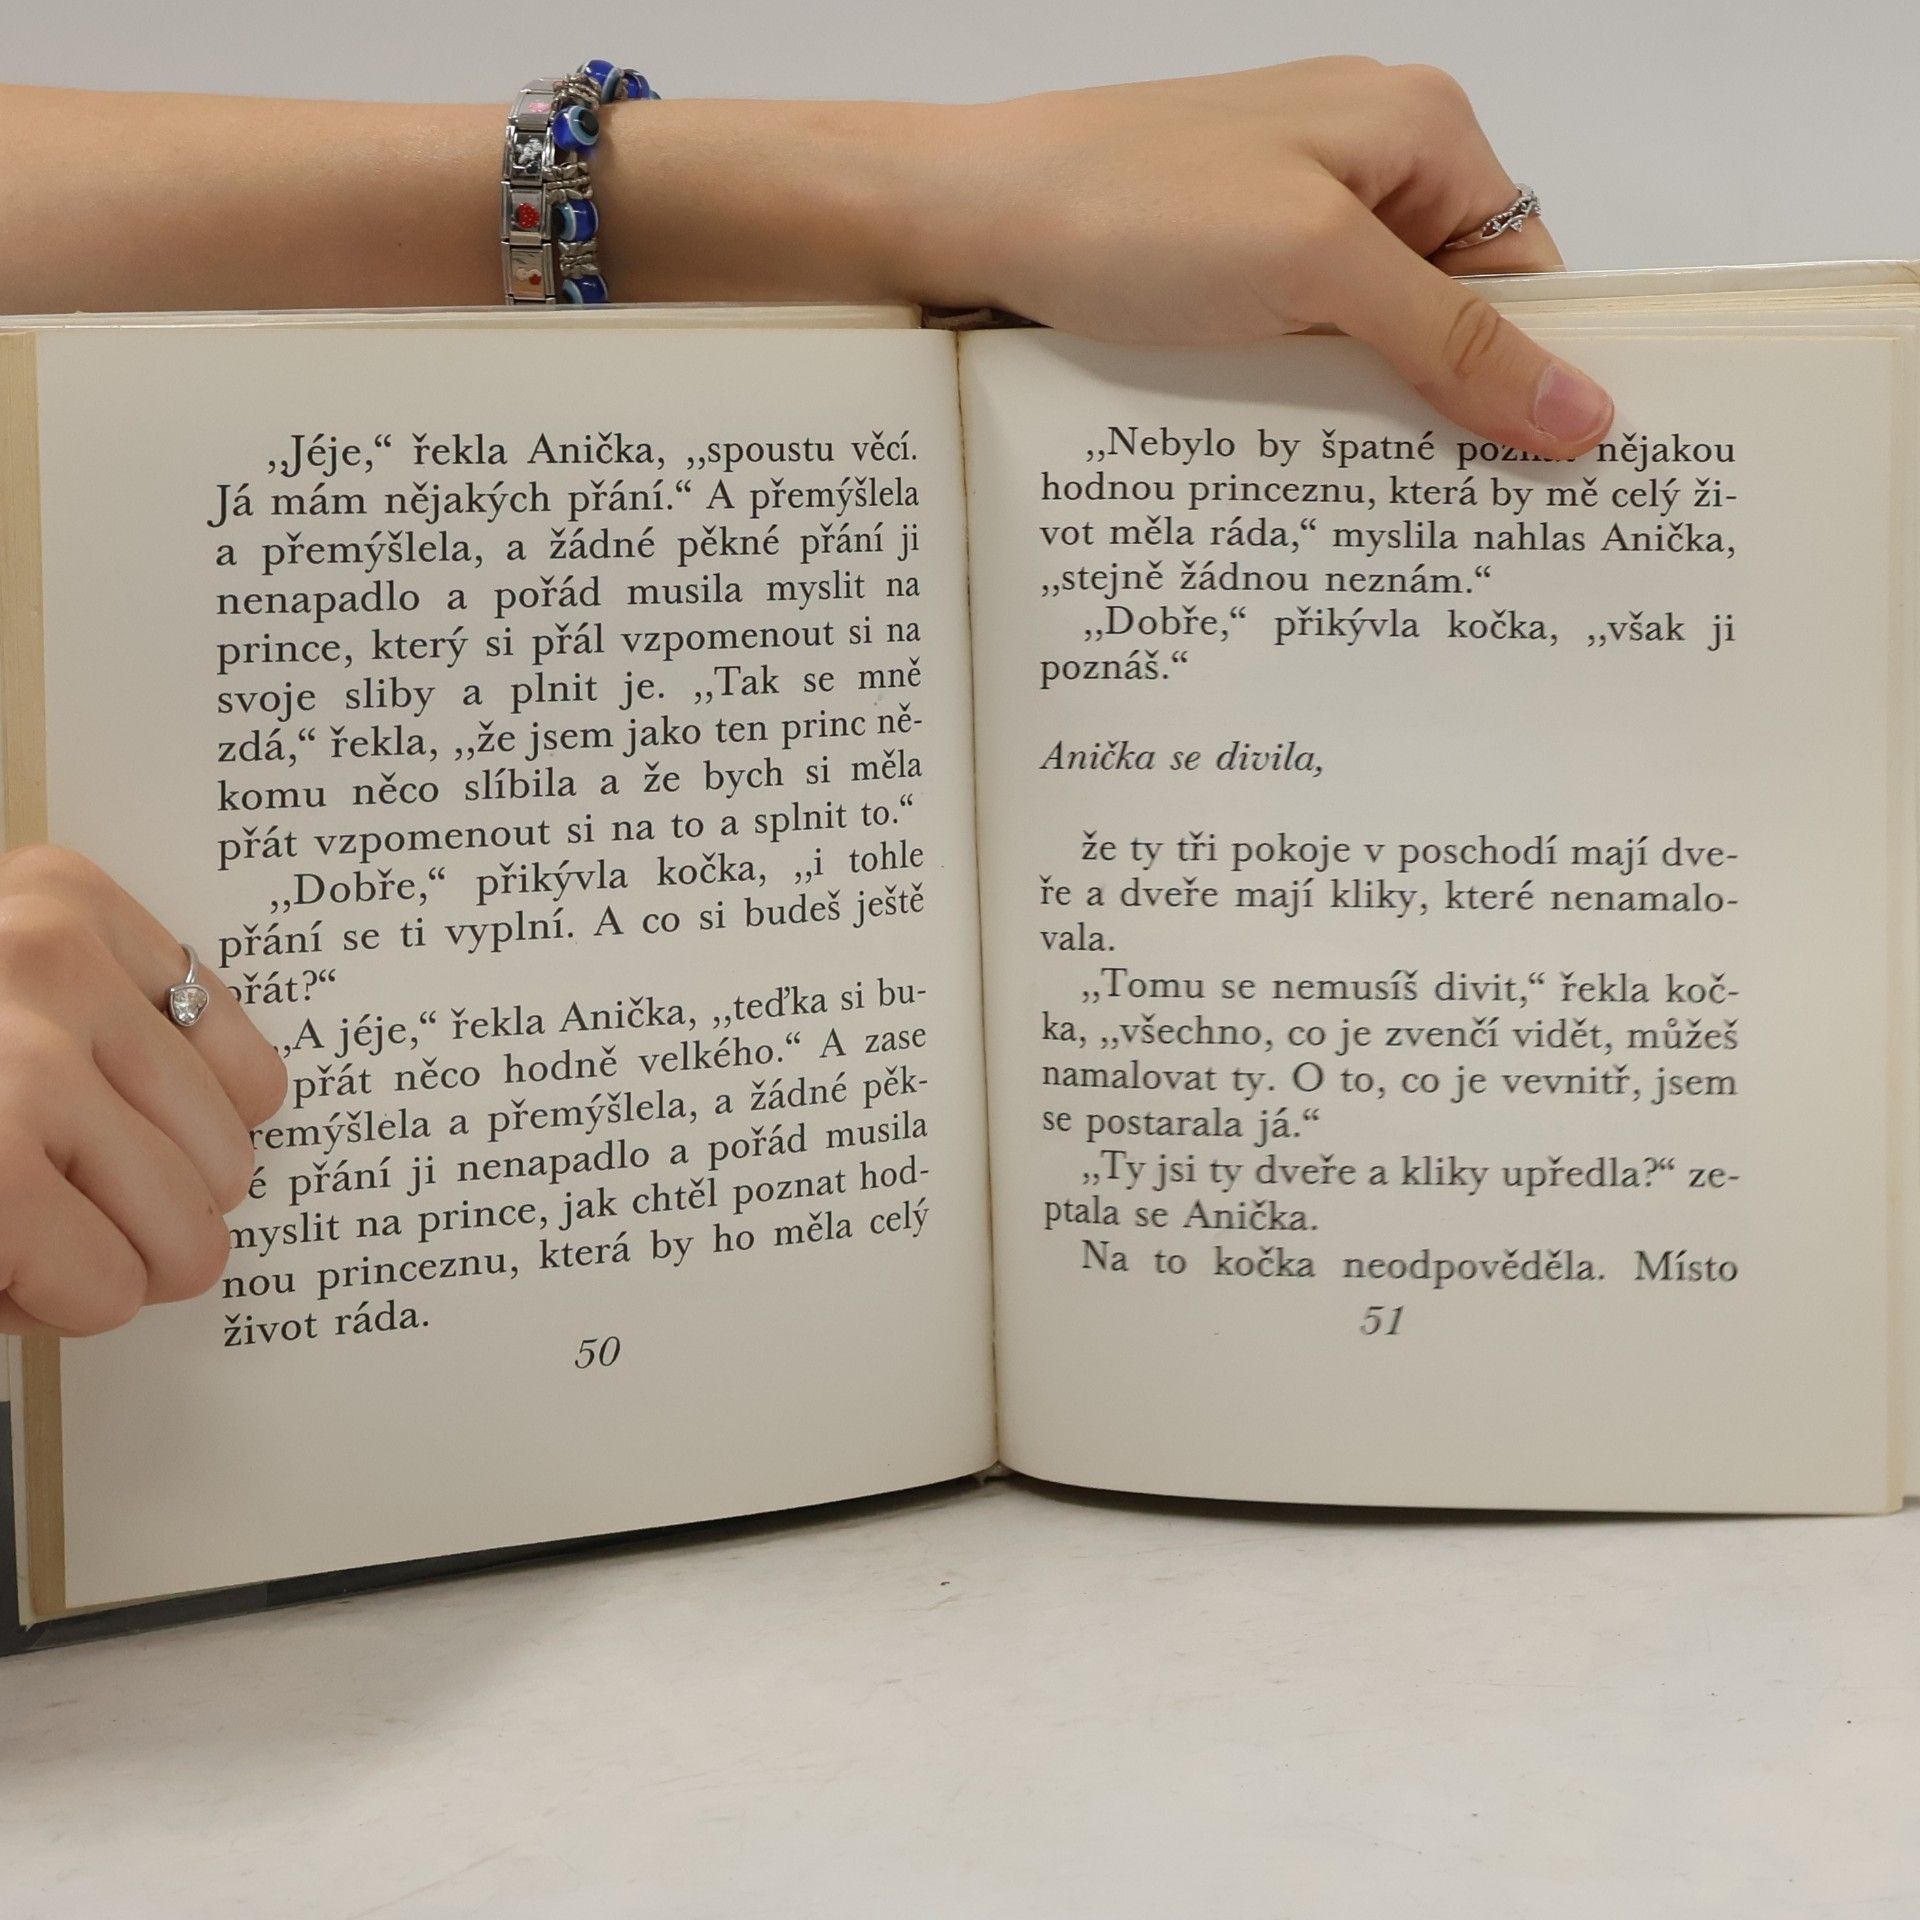 ,,Jéje,“ řekla Anička, ,,spoustu věcí.
Já mám nějakých přání.“ A přemýšlela
a přemýšlela, a žádné pěkné přání ji
nenapadlo a pořád musila myslit na
prince, který si přál vzpomenout si na
svoje sliby a plnit je. ,,Tak se mně
zdá,“ řekla, ,,že jsem jako ten princ ně-
komu něco slíbila a že bych si měla
přát vzpomenout si na to a splnit to.“
,,Dobře,“ přikývla kočka, ,,i tohle
přání se ti vyplní. A co si budeš ještě
přát?“
,,A jéje,“ řekla Anička, ,,teďka si bu-
přát něco hodně velkého.“ A zase
přemýšlela a přemýšlela, a žádné pěk-
né přání ji nenapadlo a pořád musila
myslit na prince, jak chtěl poznat hod-
nou princeznu, která by ho měla celý
život ráda.
50
,,Nebylo by špatné poznat nějakou
hodnou princeznu, která by mě celý ži-
vot měla ráda,“ myslila nahlas Anička,
,,stejně žádnou neznám.“
,,Dobře,“ přikývla kočka, ,,však ji
poznáš.“
Anička se divila,
že ty tři pokoje v poschodí mají dve-
ře a dveře mají kliky, které nenamalo-
vala.
,,Tomu se nemusíš divit,“ řekla koč-
ka, ,,všechno, co je zvenčí vidět, můžeš
namalovat ty. O to, co je vevnitř, jsem
se postarala já.“
,,Ty jsi ty dveře a kliky upředla?“ ze-
ptala se Anička.
Na to kočka neodpověděla. Místo
51